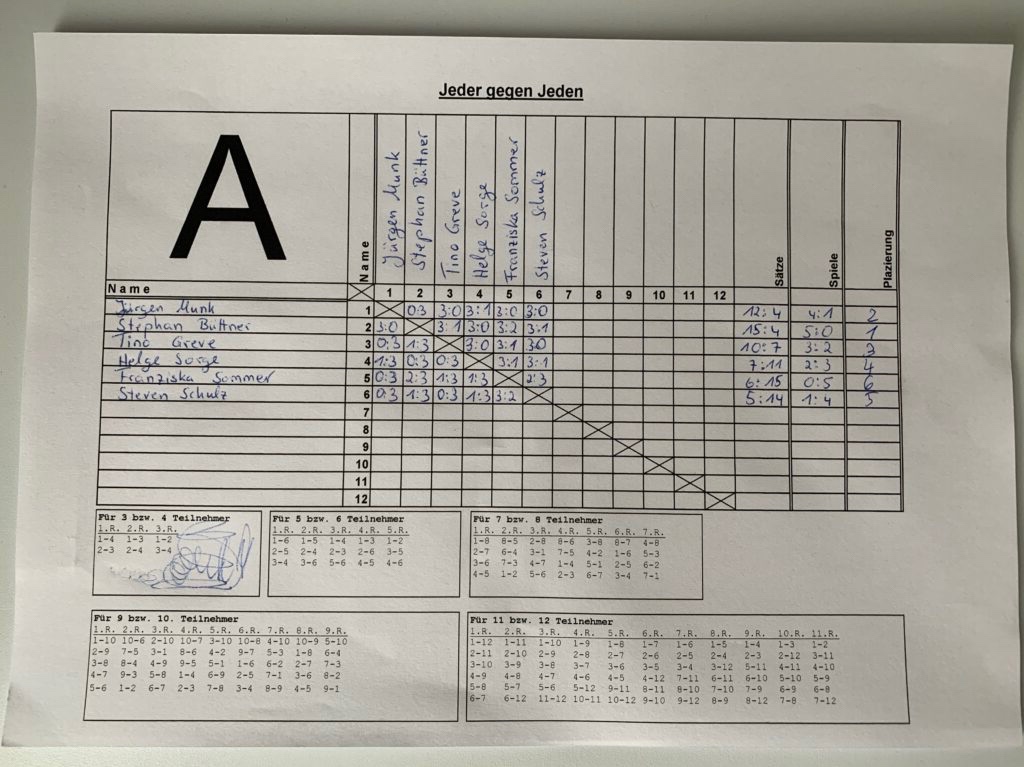 Jeder gegen Jeden
A
Name
Jürgen Munk
Stephan Büttner
Tino Greve
Helge Sorge
Franziska Sommer
Steven Schulz
Sätze
Spiele
Plazierung
Name 1 2 3 4 5 6 7 8 9 10 11 12
Jürgen Munk 1 0:3 3:0 3:1 3:0 3:0 12:4 4:1 2
Stephan Büttner 2 3:0 3:1 3:0 3:2 3:1 15:4 5:0 1
Tino Greve 3 0:3 1:3 3:0 3:1 3:0 10:7 3:2 3
Helge Sorge 4 1:3 0:3 0:3 3:1 3:1 7:11 2:3 4
Franziska Sommer 5 0:3 2:3 1:3 1:3 2:3 6:15 0:5 6
Steven Schulz 6 0:3 1:3 0:3 1:3 3:2 5:14 1:4 5
7
8
9
10
11
12
Für 3 bzw. 4 Teilnehmer
1.R. 2.R. 3.R.
1-4 1-3 1-2
2-3 2-4 3-4
Für 5 bzw. 6 Teilnehmer
1.R. 2.R. 3.R. 4.R. 5.R.
1-6 1-5 1-4 1-3 1-2
2-5 2-4 2-3 2-6 3-5
3-4 3-6 5-6 4-5 4-6
Für 7 bzw. 8 Teilnehmer
1.R. 2.R. 3.R. 4.R. 5.R. 6.R. 7.R.
1-8 8-5 2-8 8-6 3-8 8-7 4-8
2-7 6-4 3-1 7-5 4-2 1-6 5-3
3-6 7-3 4-7 1-4 5-1 2-5 6-2
4-5 1-2 5-6 2-3 6-7 3-4 7-1
Für 9 bzw. 10. Teilnehmer
1.R. 2.R. 3.R. 4.R. 5.R. 6.R. 7.R. 8.R. 9.R.
1-10 10-6 2-10 10-7 3-10 10-8 4-10 10-9 5-10
2-9 7-5 3-1 8-6 4-2 9-7 5-3 1-8 6-4
3-8 8-4 4-9 9-5 5-1 1-6 6-2 2-7 7-3
4-7 9-3 5-8 1-4 6-9 2-5 7-1 3-6 8-2
5-6 1-2 6-7 2-3 7-8 3-4 8-9 4-5 9-1
Für 11 bzw. 12 Teilnehmer
1.R. 2.R. 3.R. 4.R. 5.R. 6.R. 7.R. 8.R. 9.R. 10.R. 11.R.
1-12 1-11 1-10 1-9 1-8 1-7 1-6 1-5 1-4 1-3 1-2
2-11 2-10 2-9 2-8 2-7 2-6 2-5 2-4 2-3 2-12 3-11
3-10 3-9 3-8 3-7 3-6 3-5 3-4 3-12 5-11 4-11 4-10
4-9 4-8 4-7 4-6 4-5 4-12 7-11 6-11 6-10 5-10 5-9
5-8 5-7 5-6 5-12 9-11 8-11 8-10 7-10 7-9 6-9 6-8
6-7 6-12 11-12 10-11 10-12 9-10 9-12 8-9 8-12 7-8 7-12